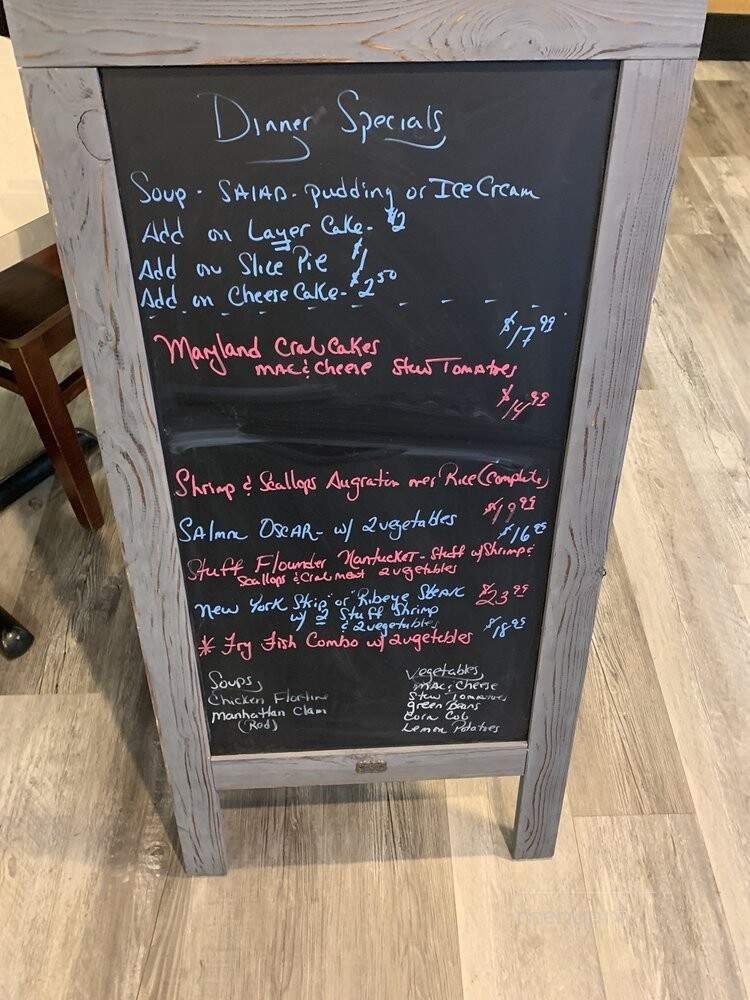 Dinner Specials
Soup - SALAD - pudding or Ice Cream
Add on Layer Cake - $2
Add on Slice Pie $1
Add on Cheese Cake - $2.50
$17.99
Maryland Crab Cakes
MAC & Cheese Stew Tomatoes
$14.99
Shrimp & Scallops Augratin over Rice (Complete)
$19.99
SAlmon OSCAR - w/ 2 vegetables
$16.95
Stuff Flounder Nantucket - Stuff w/ Shrimp &
Scallops & Crab meat 2 vegetables
New York Strip or Ribeye Steak $23.99
w/ 2 Stuff Shrimp
& 2 vegetables $18.99
* Fry Fish Combo w/ 2 vegetables
Soups
Chicken Flortine
manhattan Clam
(Red)
Vegetables
MAC & Cheese
Stew Tomatoes
green Beans
Corn Cob
Lemon Potatoes